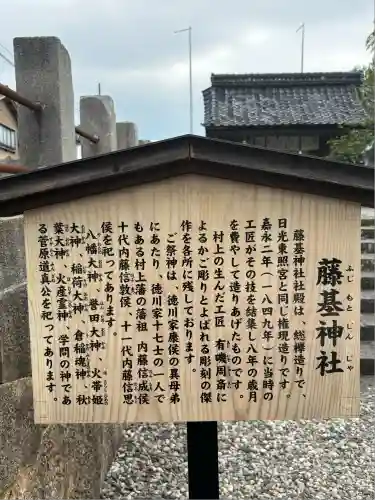 藤基神社
ふじもとじんじゃ
藤基神社社殿は、総欅造りで、
日光東照宮と同じ権現造りです。
嘉永二年（一八四九年）に当時の
工匠がその技を結集し八年の歳月
を費やして造りあげたものです。
村上の生んだ工匠 有磯周斎に
よるかご彫りとよばれる彫刻の傑
作を各所に残しております。
ご祭神は、徳川家康侯の異母弟
にあたり、徳川家十七将の一人で
もある村上藩の藩祖 内藤信成侯
十代内藤信敦侯、十一代内藤信思
侯を祀ってあります。
八幡大神、誉田大神、火帯姫
大神、稲荷大神、倉稲魂神、秋
葉大神、火産霊神、学問の神であ
る菅原道真公を祀ってあります。